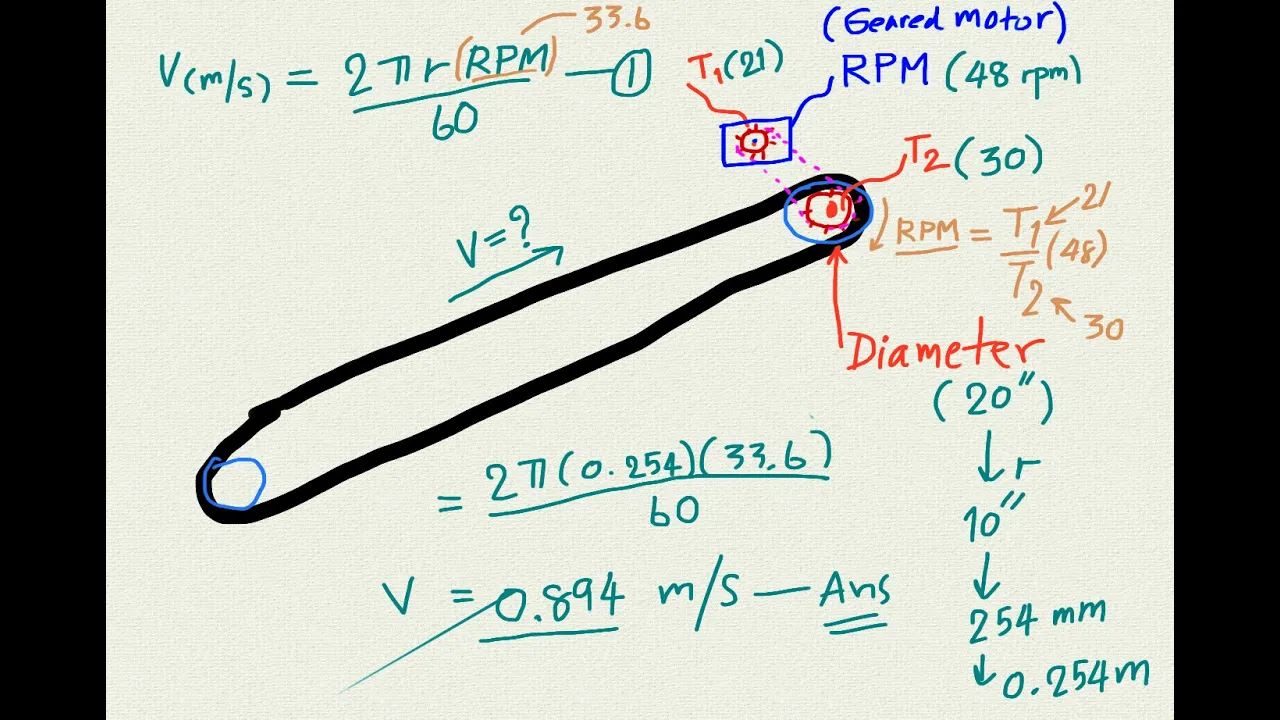 V(m/s) = 2πr(RPM) / 60 — ①
33.6
(Geared motor)
RPM (48 rpm)
T1 (21)
T2 (30)
V = ?
RPM = T1 / T2 (48)
21
30
Diameter
(20")
r
10"
254 mm
0.254m
= 2π(0.254)(33.6) / 60
V = 0.894 m/s — Ans